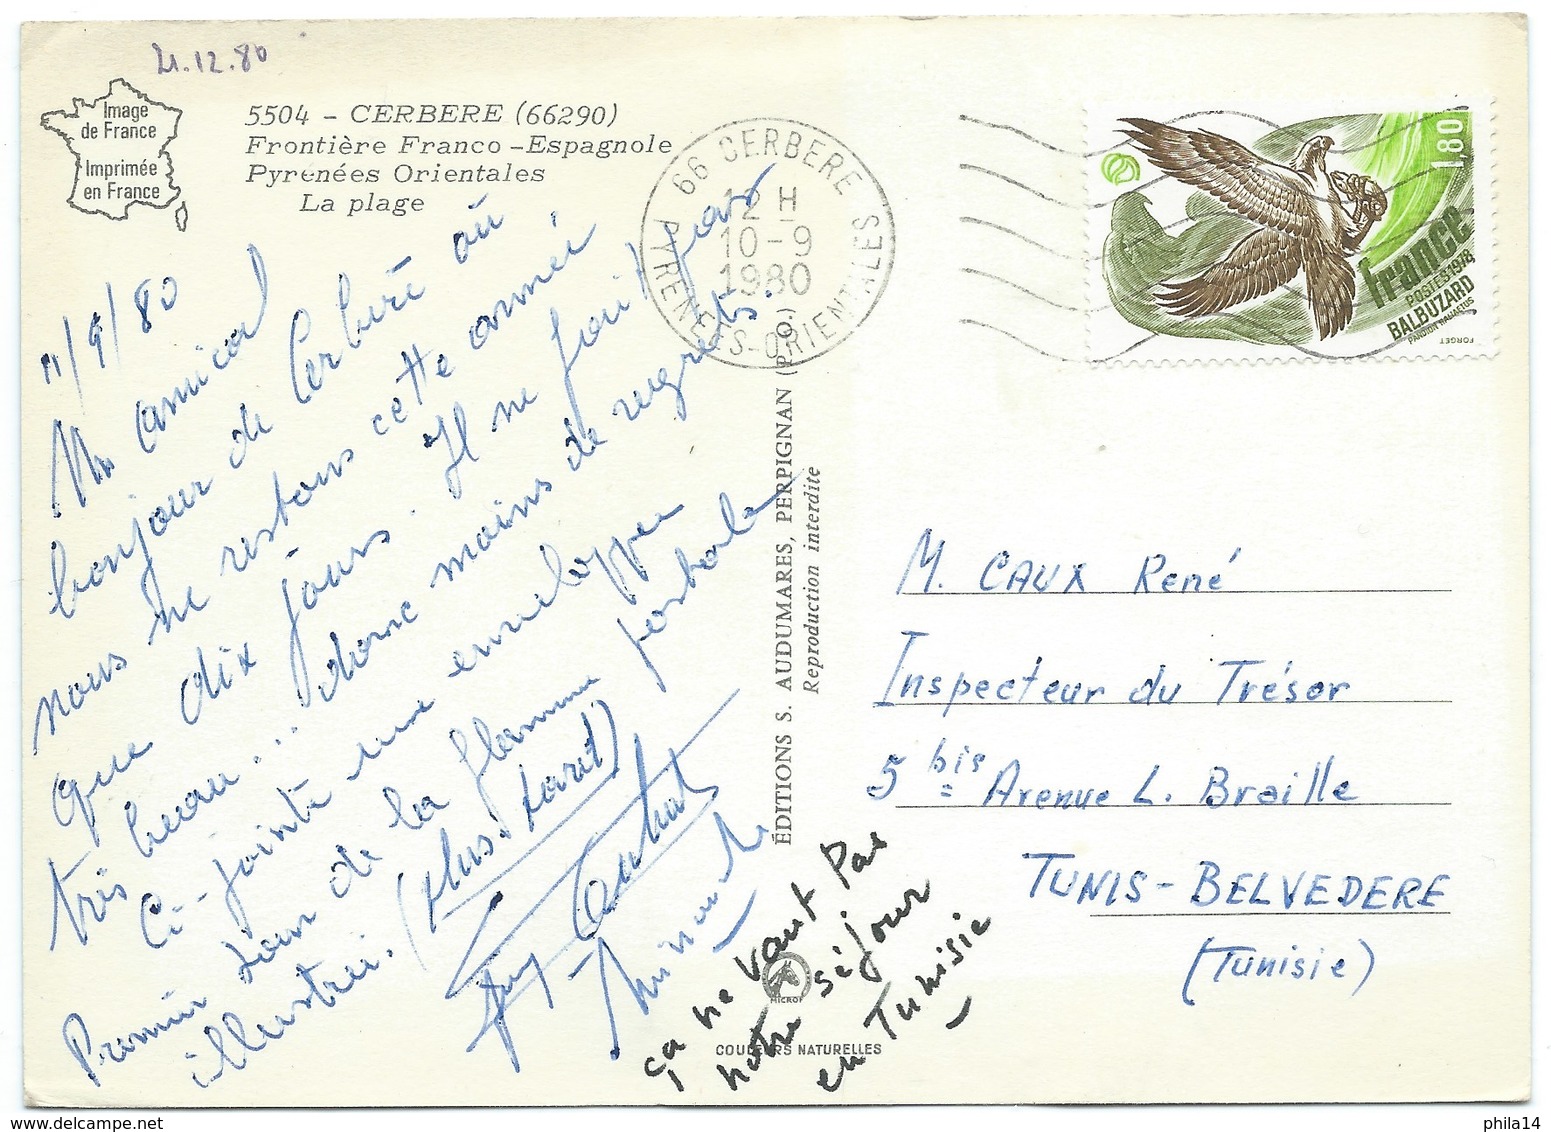 21.12.80
Image
de France
Imprimée
en France
5504 - CERBERE (66290)
Frontière Franco-Espagnole
Pyrénées Orientales
La plage
66 CERBERE
12 H
10-9
1980
PYRENEES-ORIENTALES
1,80
france
POSTES 1978
BALBUZARD
PANDION HALIAETUS
FORGET
11/9/80
Un amical
bonjour de Cerbère où
nous ne restons cette année
que dix jours. Il ne fait pas
très beau... donc moins de regrets.
Ci-jointe une enveloppe
Premier Jour de la flamme postale
illustrée. (plus tard)
ça ne vaut pas
notre séjour
en Tunisie
ÉDITIONS S. AUDUMARES, PERPIGNAN (P.O.)
Reproduction interdite
MICROF
COULEURS NATURELLES
M. CAUX René
Inspecteur du Trésor
5 bis Avenue L. Braille
TUNIS-BELVEDERE
(Tunisie)
phila14